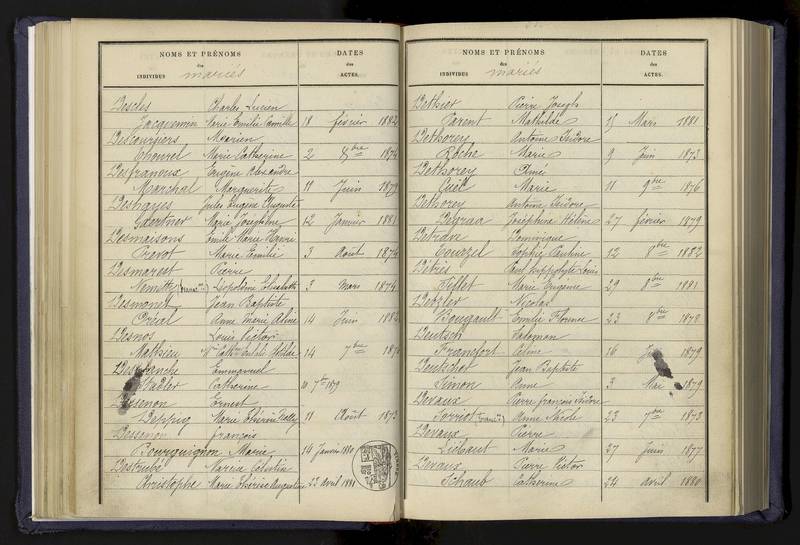 NOMS ET PRÉNOMS
des
INDIVIDUS
mariés
DATES
des
ACTES.
Descles Charles Lucien
Jacquemin Marie Emilie Camille 18 février 1882
Descourviers
Thouvel Marie Catherine 2 8bre 1874
Desfraneux Eugène Alexandre
Marchal Marguerite 11 Juin 1879
Deshayes Jules Eugène Auguste
Gaertner Marie Joséphine 12 Janvier 1881
Desmaisons Emile Marie Henri
Prevot Marie Emilie 3 Août 1874
Desmarest Pierre
Léopoldine Elisabeth 3 Mars 1874
Desmonet Jean Baptiste
Créal Anne Marie Aline 14 Juin 1882
Desnos Louis Victor
Mathieu 14 7bre
Emmanuel
Stadler Catherine 10 7bre 1879
Ernest
Marie Thérèse 11 Août 1873
Dessenon françois
Bourguignon Marie 14 Janvier 1880
Destrubé Marcien Célestin
Christophe Marie Thérèse Augustine 23 avril 1881
NOMS ET PRÉNOMS
des
INDIVIDUS
mariés
DATES
des
ACTES.
Dethier Pierre Joseph
Parent Mathilde 15 Mars 1881
Dethorey Antoine Isidore
Roche Marie 9 Juin 1873
Dethorey Aimé
Marie 11 9bre 1876
Dethorey Antoine Isidore
Joséphine Hélène 27 février 1879
Dominique
Sophie Pauline 12 8bre 1882
Paul hippolyte Louis
Tillet Marie Eugénie 29 8bre 1881
Detzler Nicolas
Bougault Emilie Florence 23 8bre 1878
Deutsch Salomon
Francfort Céline 16 1879
Deutschot Jean Baptiste
Simon Anne 3 Mai 1879
Devaux Pierre françois Isidore
Anne Nicole 23 7bre 1873
Devaux Pierre
Liébaut Marie 27 Juin 1877
Devaux Pierre Victor
Schaub Catherine 24 avril 1880